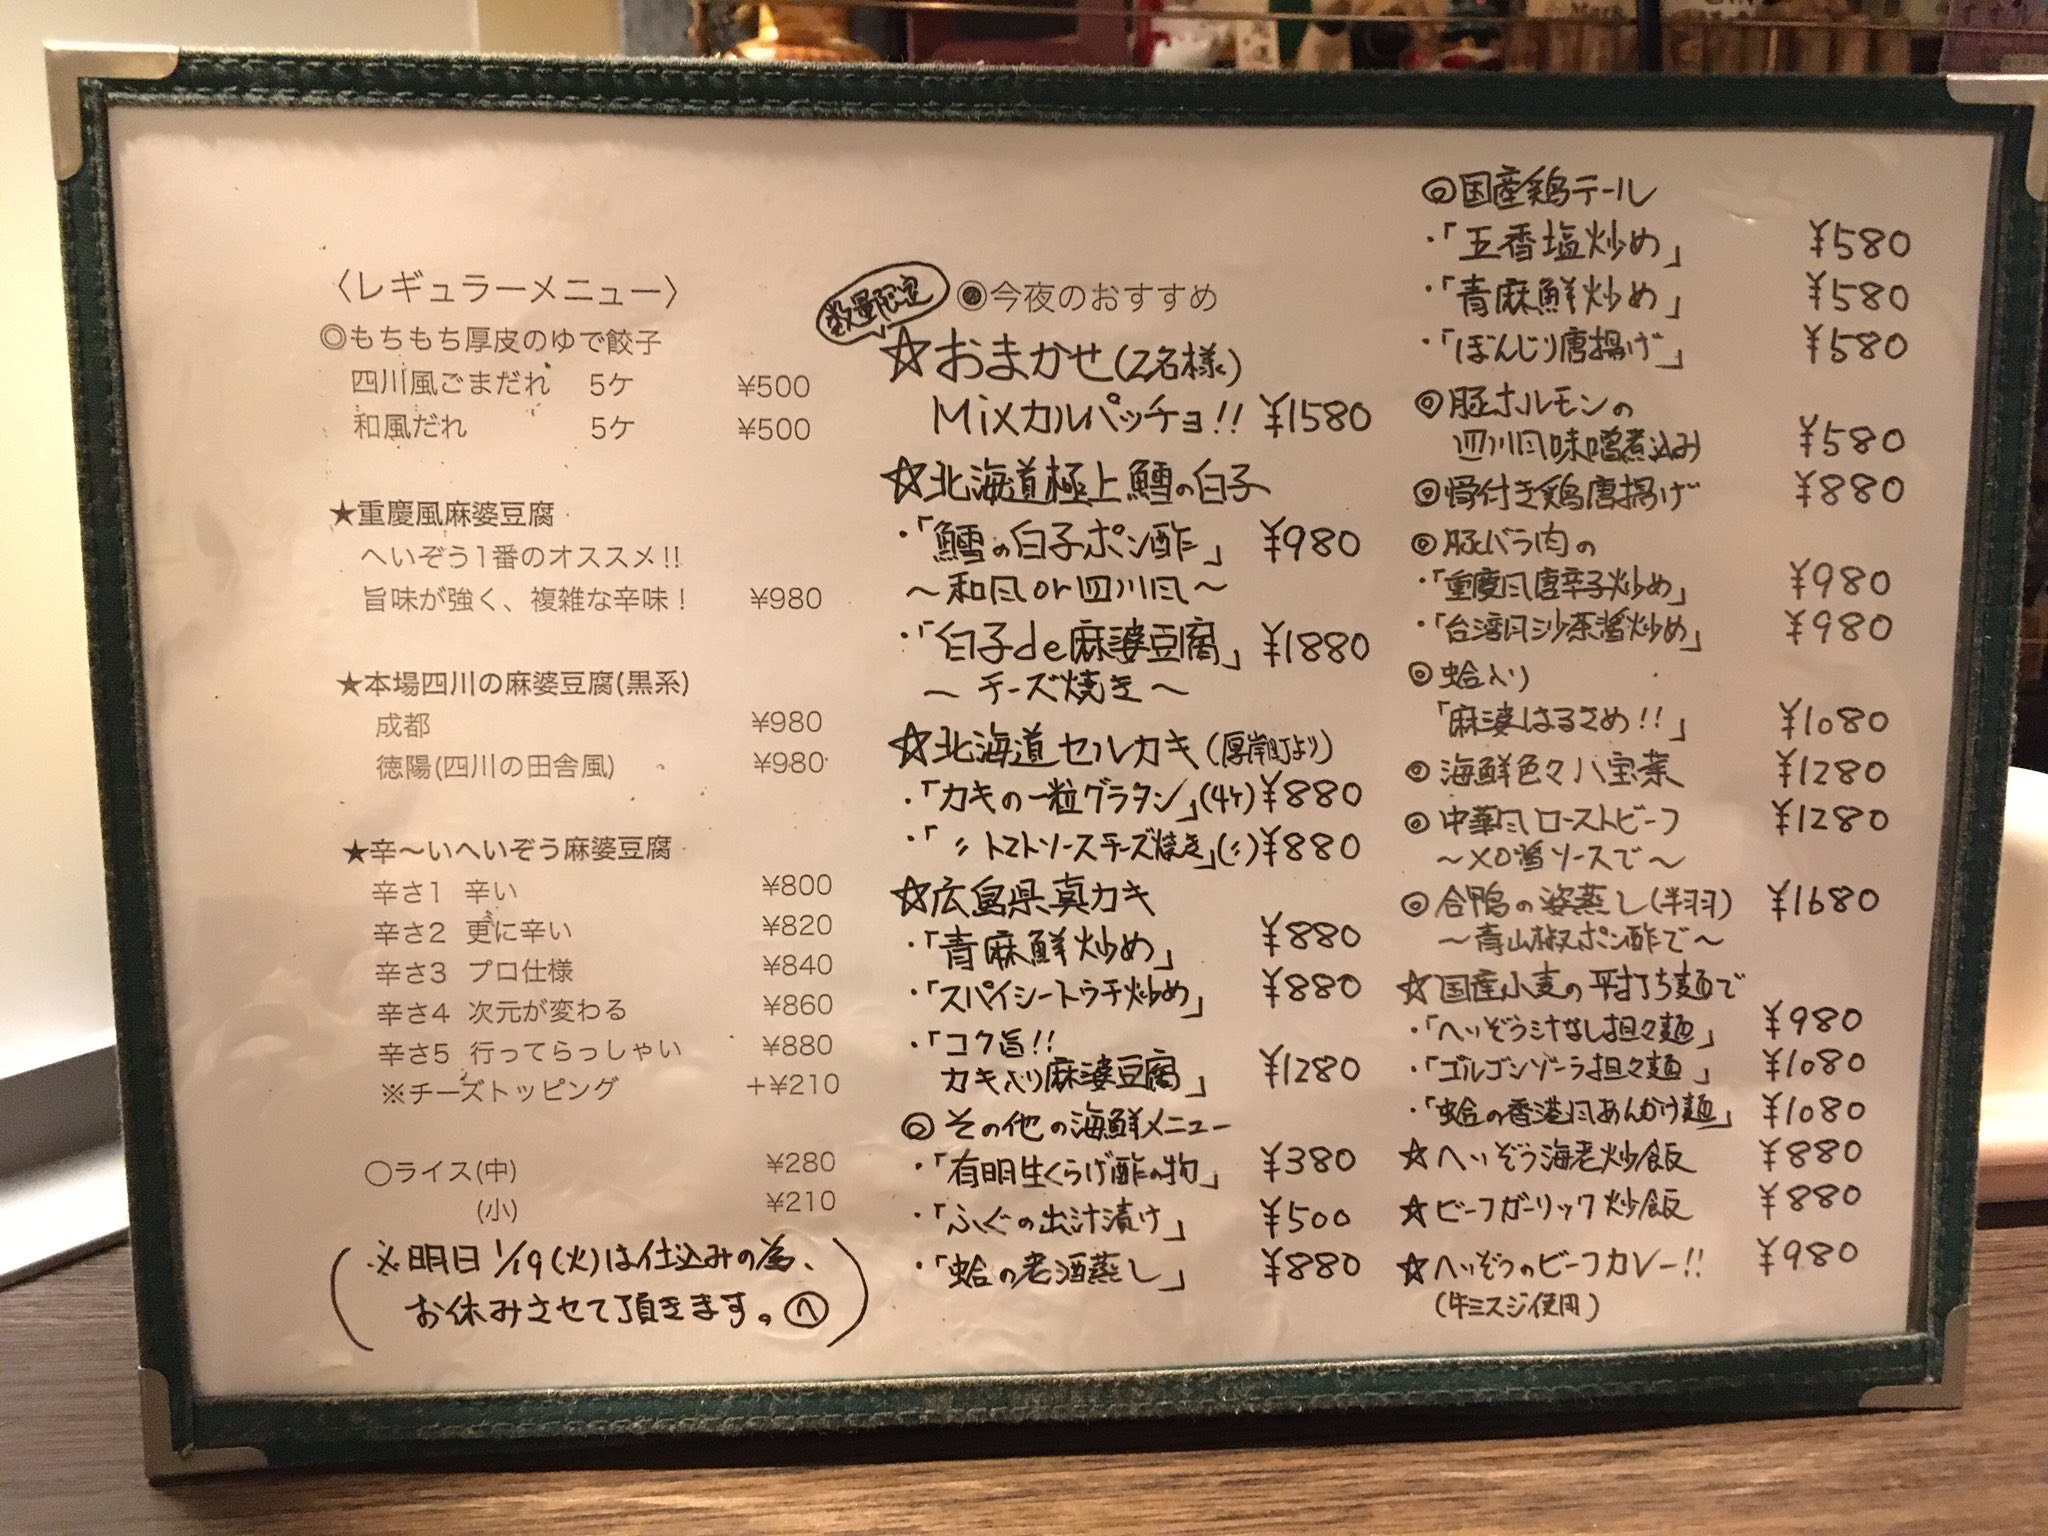 〈レギュラーメニュー〉
◎もちもち厚皮のゆで餃子
四川風ごまだれ 5ケ ¥500
和風だれ 5ケ ¥500
★重慶風麻婆豆腐
へいぞう1番のオススメ!!
旨味が強く、複雑な辛味！ ¥980
★本場四川の麻婆豆腐(黒系)
成都 ¥980
徳陽(四川の田舎風) ¥980
★辛〜いへいぞう麻婆豆腐
辛さ1 辛い ¥800
辛さ2 更に辛い ¥820
辛さ3 プロ仕様 ¥840
辛さ4 次元が変わる ¥860
辛さ5 行ってらっしゃい ¥880
※チーズトッピング +¥210
○ライス(中) ¥280
(小) ¥210
(※明日 1/19(火)は仕込みの為、
お休みさせて頂きます。へ)
数量限定
◉今夜のおすすめ
☆おまかせ(2名様)
Mixカルパッチョ!! ¥1580
☆北海道極上鱈の白子
・「鱈の白子ポン酢」 ¥980
〜和風or四川風〜
・「白子de麻婆豆腐」 ¥1880
〜チーズ焼き〜
☆北海道セルカキ(厚岸町より)
・「カキの一粒グラタン」(4ケ) ¥880
・「〃トマトソースチーズ焼き」(〃) ¥880
☆広島県真カキ
・「青麻鮮炒め」 ¥880
・「スパイシートウチ炒め」 ¥880
・「コク旨!!
カキ入り麻婆豆腐」 ¥1280
◎その他の海鮮メニュー
・「有明生くらげ酢の物」 ¥380
・「ふぐの出汁漬け」 ¥500
・「蛤の老酒蒸し」 ¥880
◎国産鶏テール
・「五香塩炒め」 ¥580
・「青麻鮮炒め」 ¥580
・「ぼんじり唐揚げ」 ¥580
◎豚ホルモンの
四川風味噌煮込み ¥580
◎骨付き鶏唐揚げ ¥880
◎豚バラ肉の
・「重慶風唐辛子炒め」 ¥980
・「台湾風沙茶醤炒め」 ¥980
◎蛤入り
「麻婆はるさめ!!」 ¥1080
◎海鮮色々八宝菜 ¥1280
◎中華風ローストビーフ ¥1280
〜XO醤ソースで〜
◎合鴨の姿蒸し(半羽) ¥1680
〜青山椒ポン酢で〜
☆国産小麦の平打ち麺で
・「へいぞう汁なし担々麺」 ¥980
・「ゴルゴンゾーラ担々麺」 ¥1080
・「蛤の香港風あんかけ麺」 ¥1080
☆へいぞう海老炒飯 ¥880
☆ビーフガーリック炒飯 ¥880
☆へいぞうのビーフカレー!! ¥980
(牛ミスジ使用)